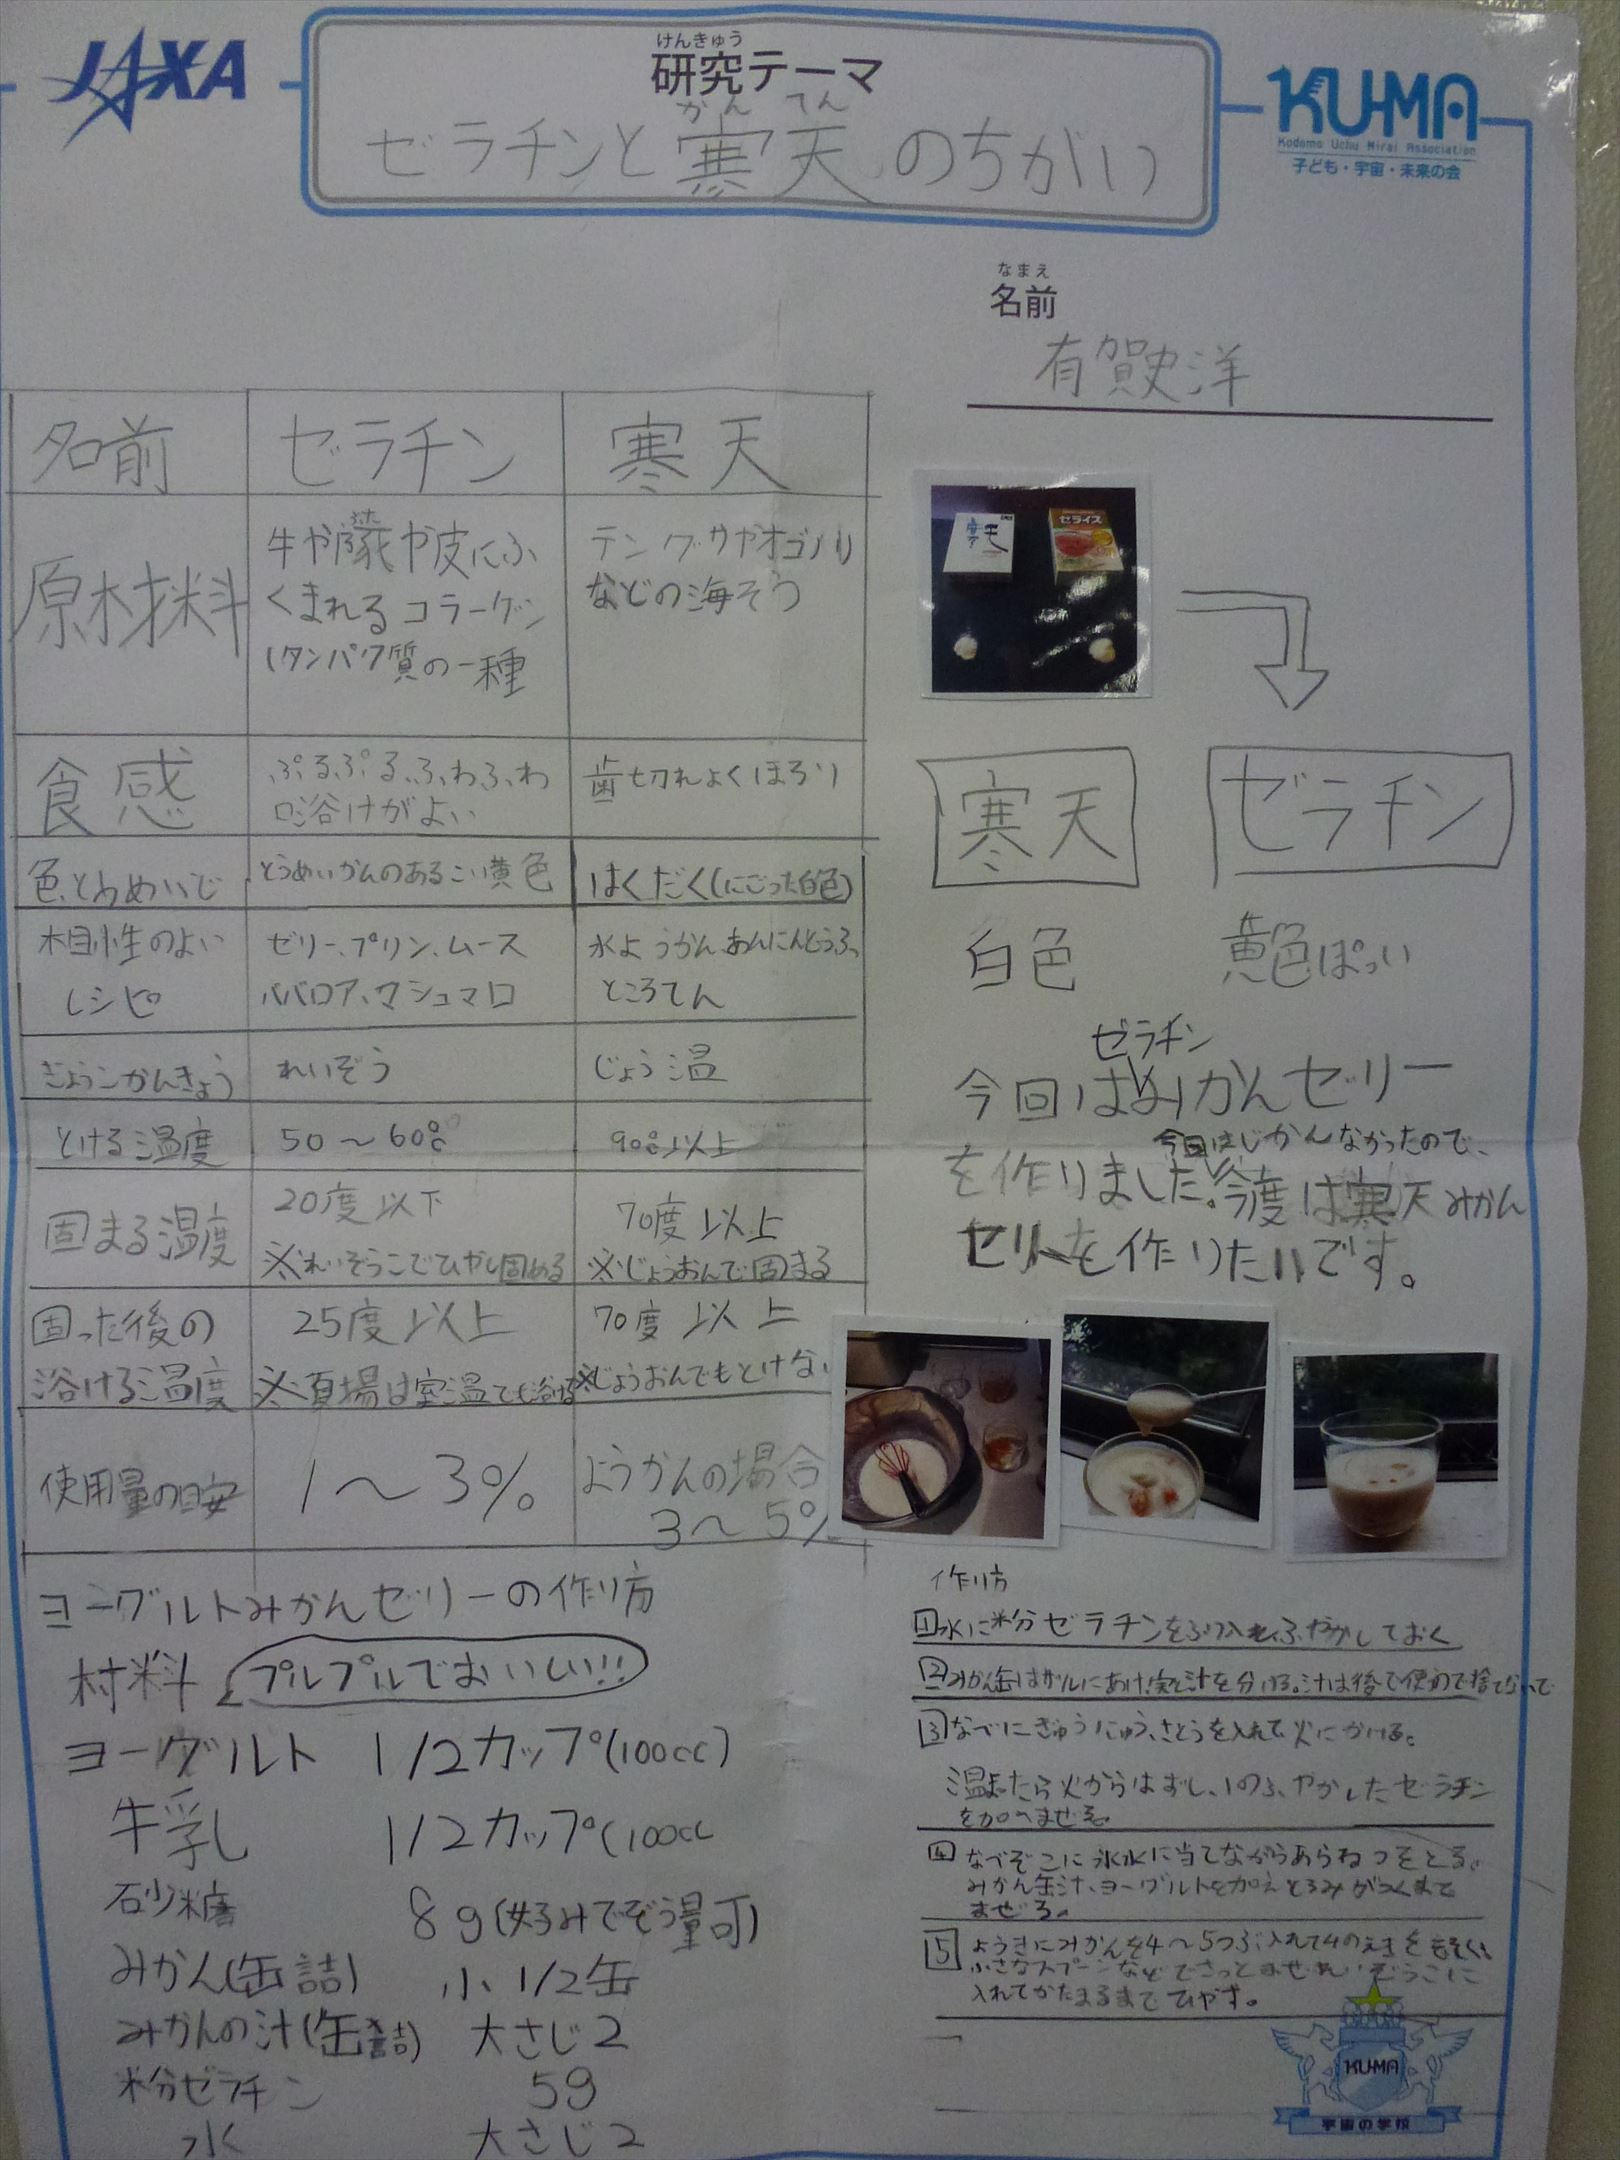 JAXA
けんきゅう
研究テーマ
かんてん
ゼラチンと寒天のちがい
KU-MA
Kodomo Uchu Mirai Association
子ども・宇宙・未来の会
なまえ
名前
有賀史洋
名前 ゼラチン 寒天
原材料
牛や豚や皮にふ
くまれるコラーゲン
(タンパク質の一種
テングサやオゴノリ
などの海そう
食感
ぷるぷる、ふわふわ
口溶けがよい
歯切れよくほろり
色、とうめいど とうめいかんのあるこい黄色 はくだく(にごった白色)
相性のよい
レシピ
ゼリー、プリン、ムース
ババロア、マシュマロ
水ようかん、あんにんどうふ、
ところてん
ぎょうこかんきょう れいぞう じょう温
とける温度 50〜60℃ 90℃以上
固まる温度
20度以下
※れいぞうこでひやし固める
70度以上
※じょうおんで固まる
固った後の
溶ける温度
25度以上
※夏場は室温でも溶ける
70度以上
※じょうおんでもとけない
使用量の目安
1〜3%
ようかんの場合
3〜5%
寒天
ゼライス
寒天 ゼラチン
白色 黄色ぽい
ゼラチン
今回はみかんゼリー
今回はじかんなかったので、
を作りました。今度は寒天みかん
ゼリーを作りたいです。
ヨーグルトみかんゼリーの作り方
材料 プルプルでおいしい!!
ヨーグルト 1/2カップ(100cc)
牛乳 1/2カップ(100cc
砂糖 8g(好みでぞう量可)
みかん(缶詰) 小1/2缶
みかんの汁(缶詰) 大さじ2
粉ゼラチン 5g
水 大さじ2
作り方
1水に粉ゼラチンをふり入れふやかしておく
2みかん缶はザルにあけ実と汁を分ける。汁は後で使うので捨てないで
3なべにぎゅうにゅう、さとうを入れて火にかける。
温まったら火からはずし、1のふやかしたゼラチン
を加へまぜる。
4なべぞこに氷水に当てながらあらねつをとる。
みかん缶汁、ヨーグルトを加えとろみがつくまで
まぜる。
5ようきにみかんを4〜5つぶ入れて4のえきをそそぐ。
小さなスプーンなどでさっとまぜれいぞうこに
入れてかたまるまでひやす。
KU-MA
宇宙の学校